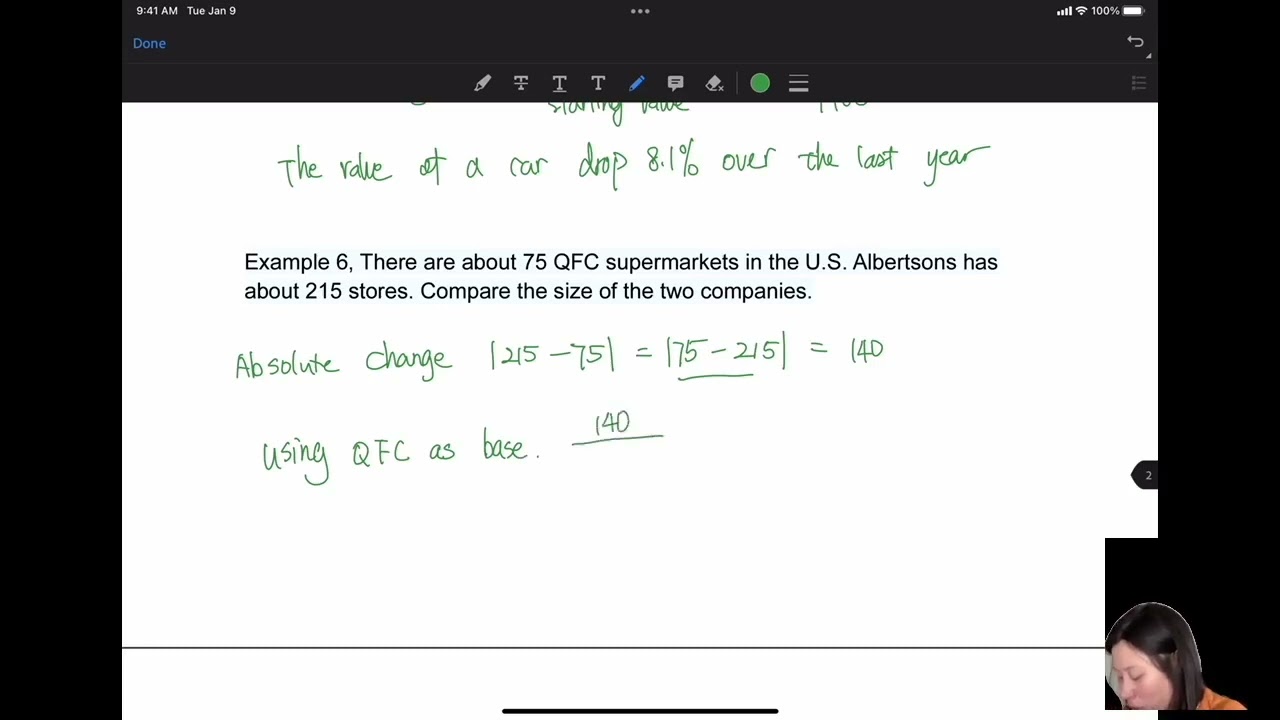 9:41 AM Tue Jan 9
100%
Done
starting value
The value of a car drop 8.1% over the last year
Example 6, There are about 75 QFC supermarkets in the U.S. Albertsons has
about 215 stores. Compare the size of the two companies.
Absolute change |215 - 75| = |75 - 215| = 140
Using QFC as base. 140
2